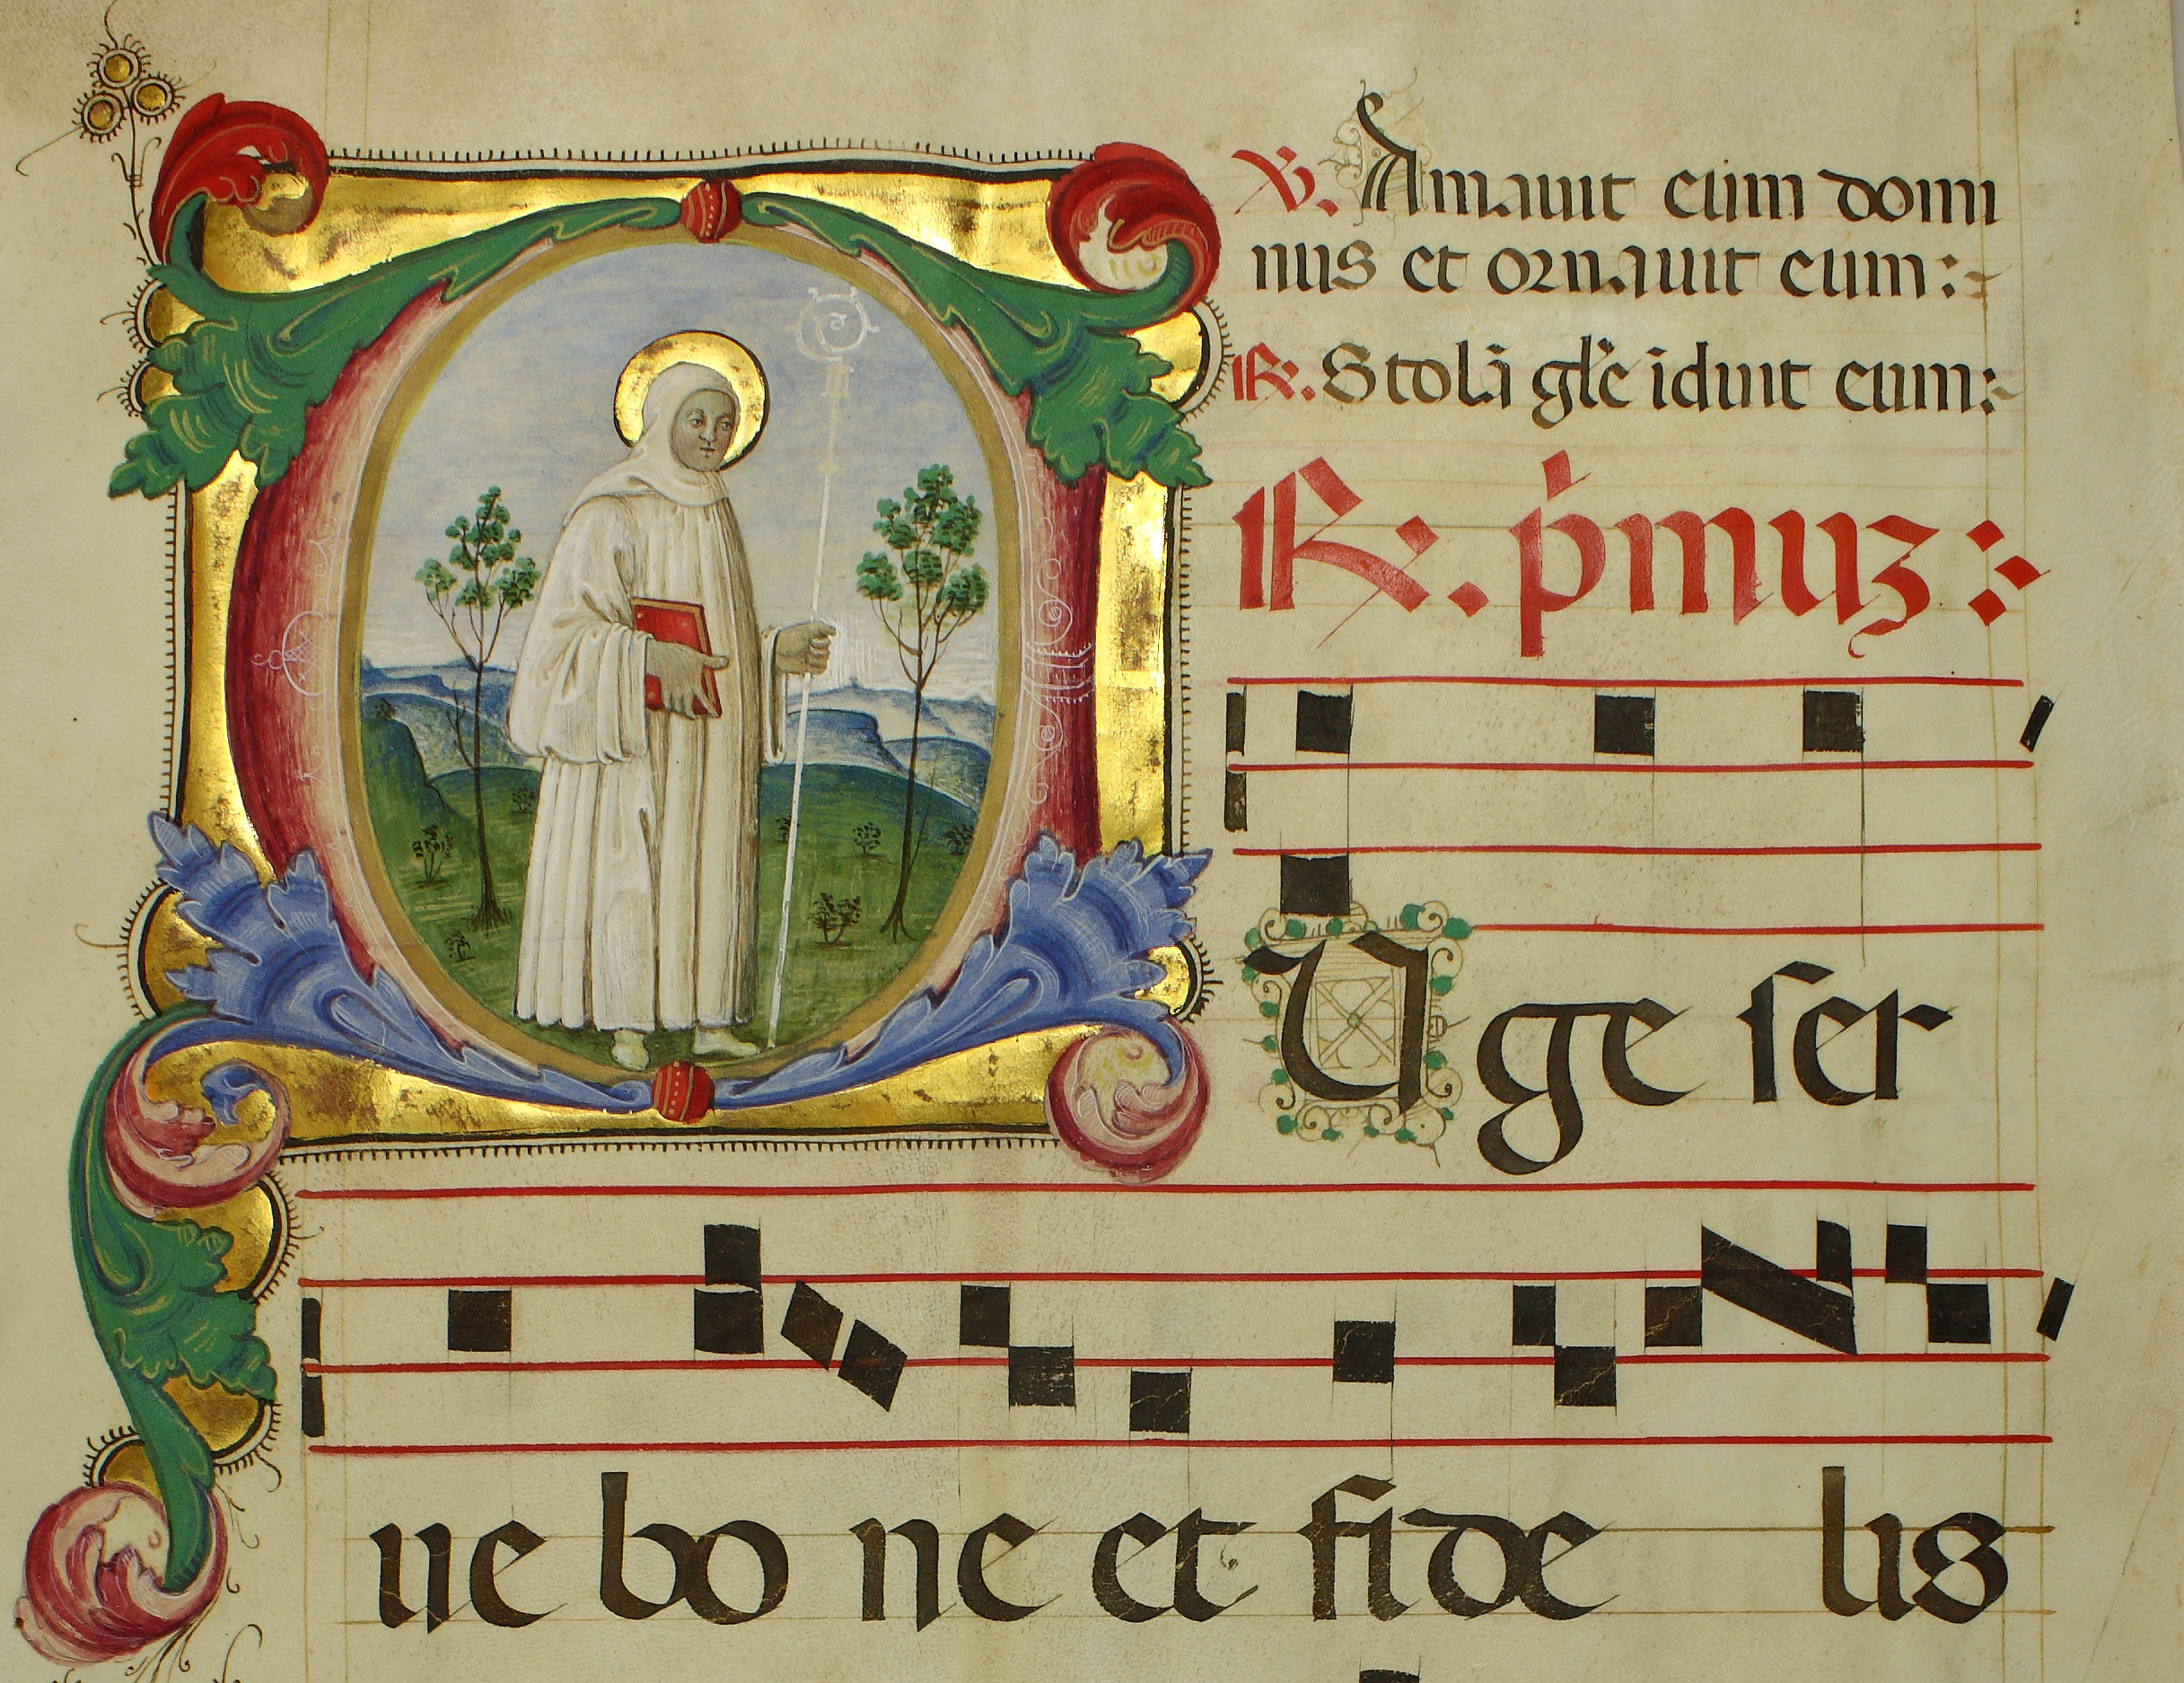 ℣. Amauit eum domi
nus et ornauit eum:~
℟. Stolā gl̄e īduit eum:~
℟. p̍muꝫ:
Uge ser
ue bo ne et fide lis